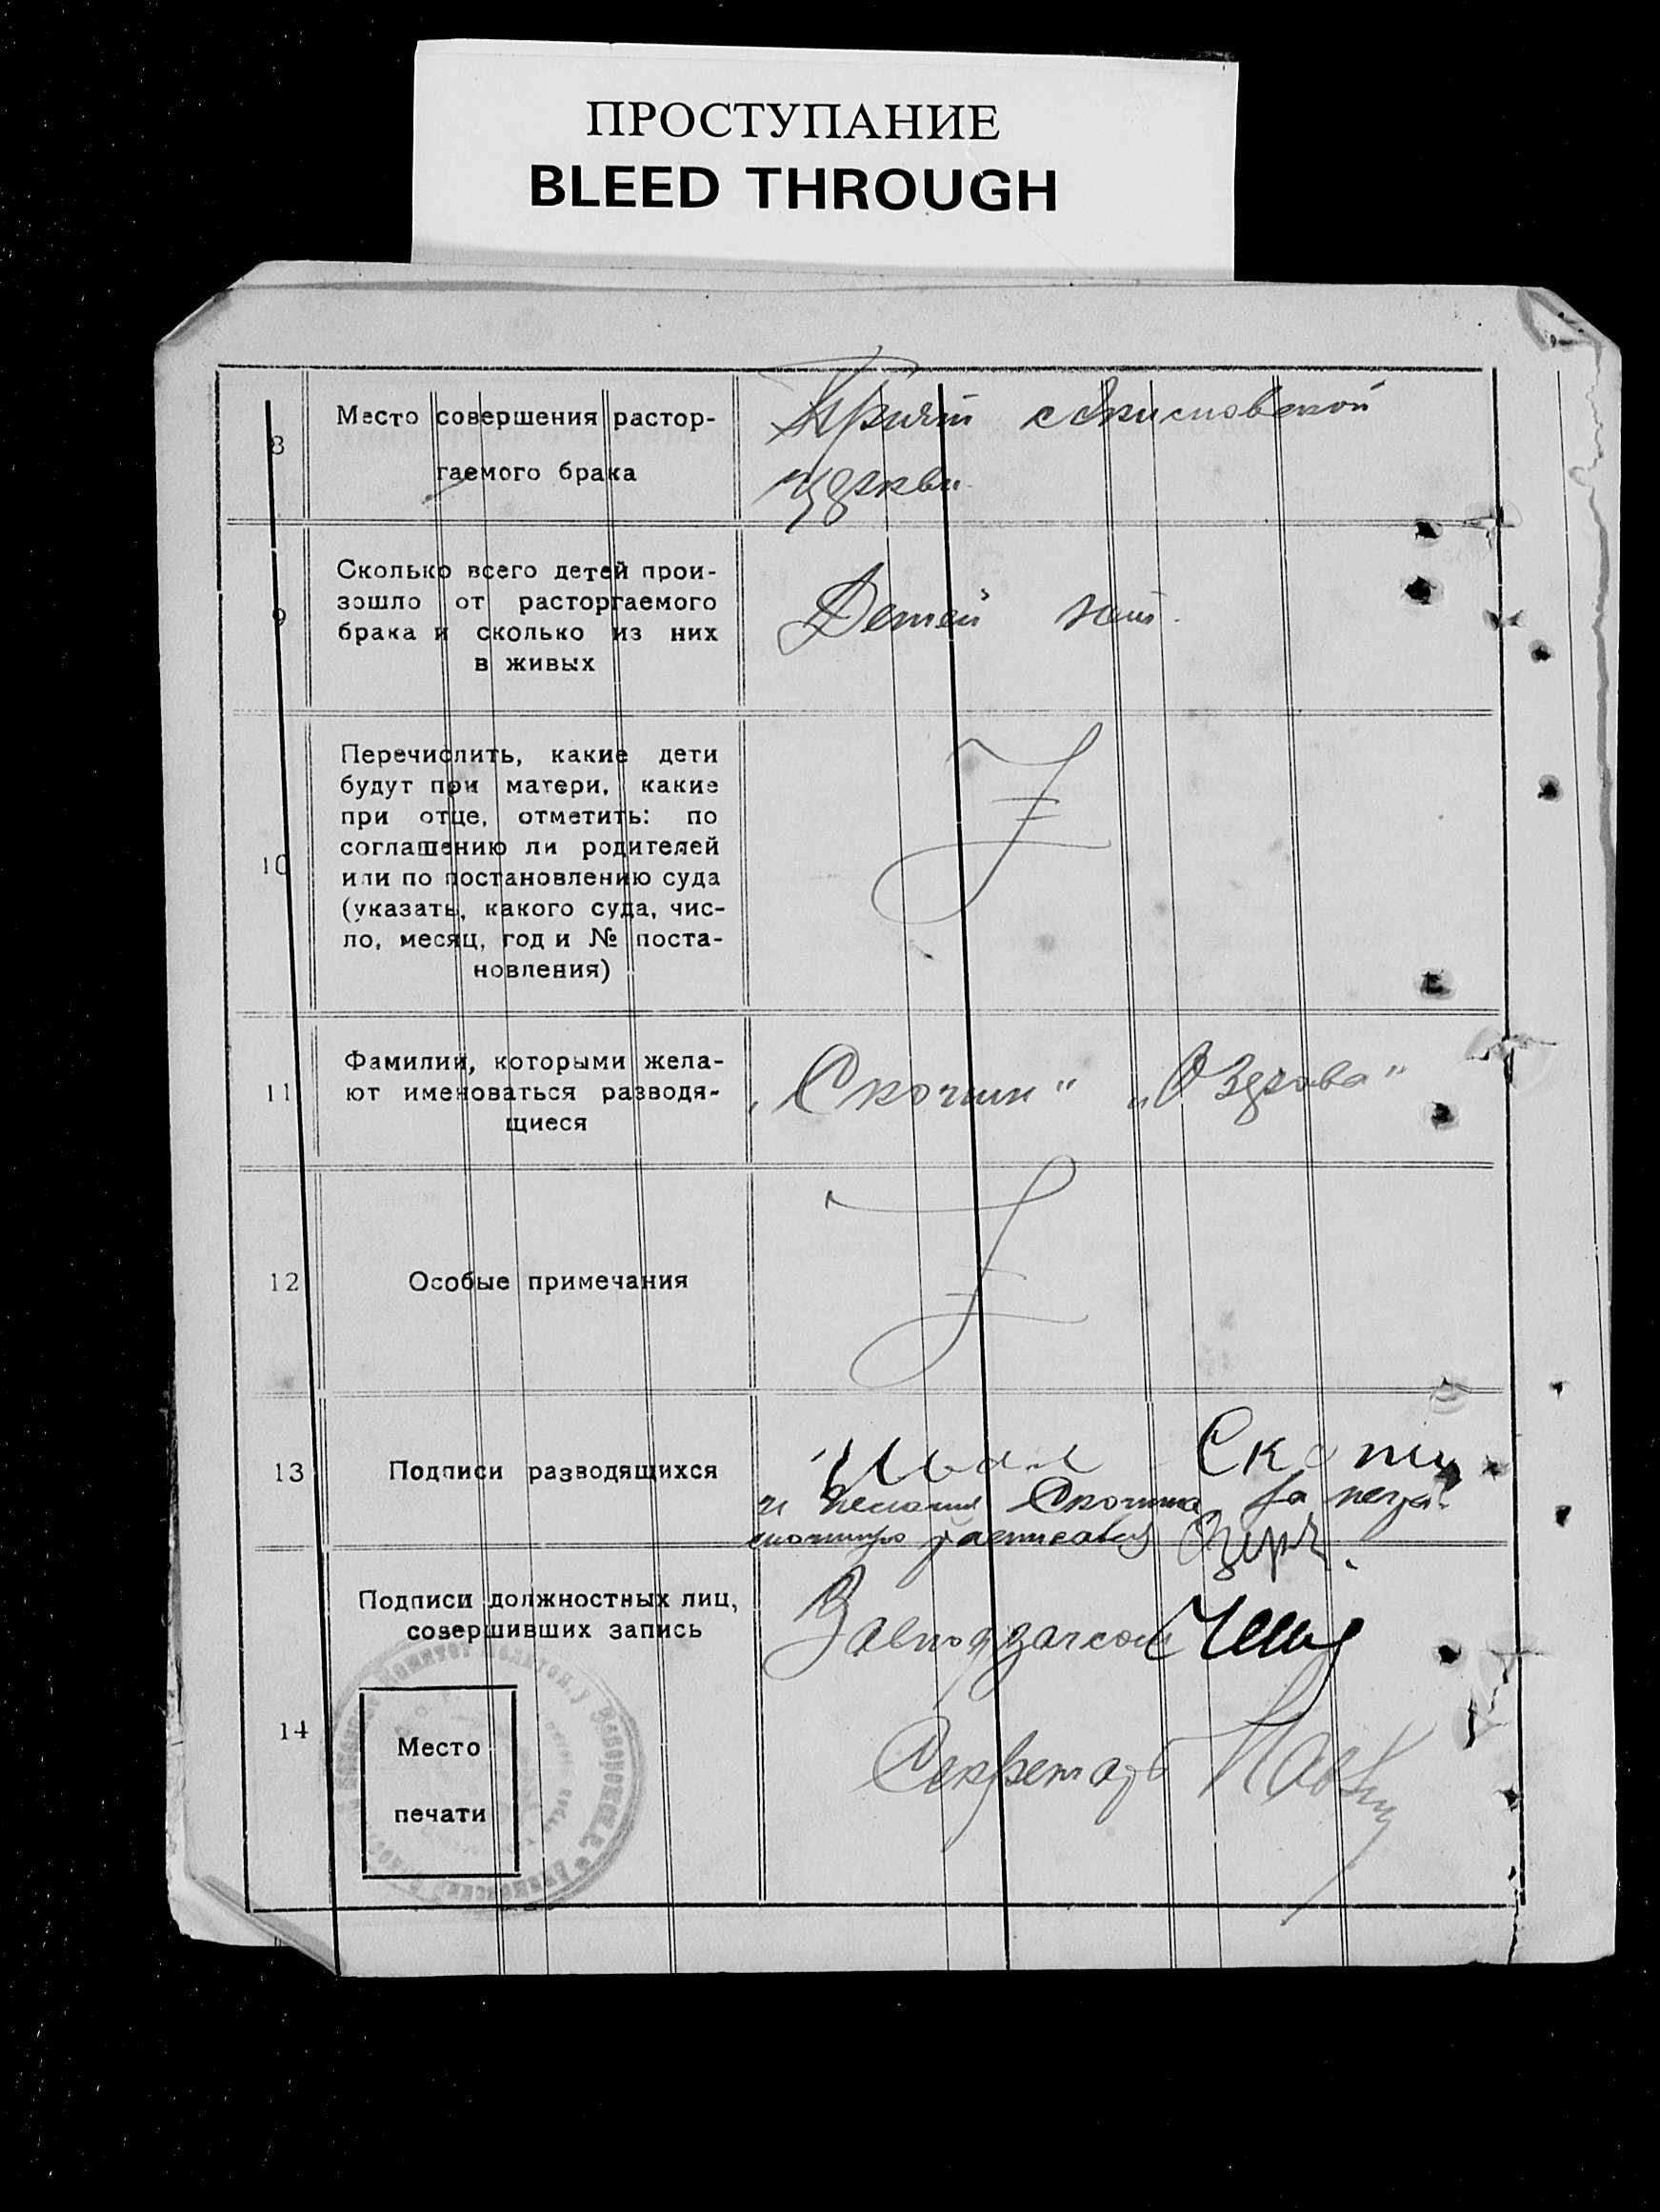 ПРОСТУПАНИЕ
BLEED THROUGH
8
Место совершения растор-
гаемого брака
при
церкви
9
Сколько всего детей прои-
зошло от расторгаемого
брака и сколько из них
в живых
Детей нет.
10
Перечислить, какие дети
будут при матери, какие
при отце, отметить: по
соглашению ли родителей
или по постановлению суда
(указать, какого суда, чис-
ло, месяц, год и № поста-
новления)
11
Фамилии, которыми жела-
ют именоваться разводя-
щиеся
„Скочин" „Озерова"
12
Особые примечания
13
Подписи разводящихся
Иван Скочин
Скочина за негра-
мотную расписался
14
Подписи должностных лиц,
совершивших запись
Завподзагсом
Секретарь
Место
печати